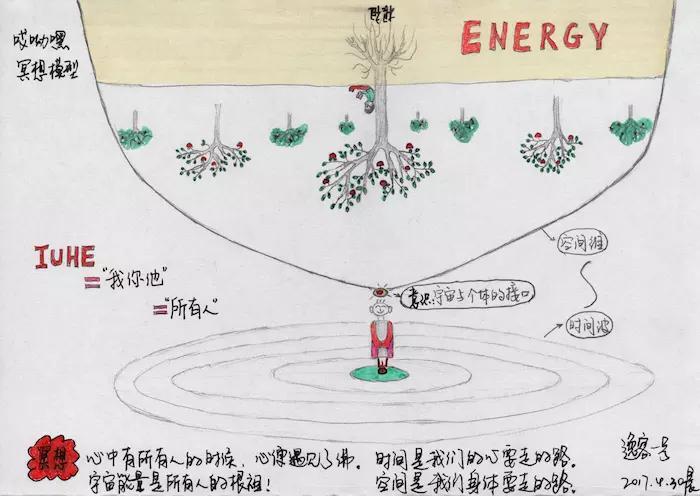 ENERGY
哎呦嘿
冥想模型
IUHE
="我你他"
="所有人"
空间维
意识:宇宙与个体的接口
时间波
冥想
心中有所有人的时候,心像遇见了佛。时间是我们的心要走的路。
宇宙能量是所有人的根祖!空间是我们身体要走的路。
逸容一号
2017.4.30晨